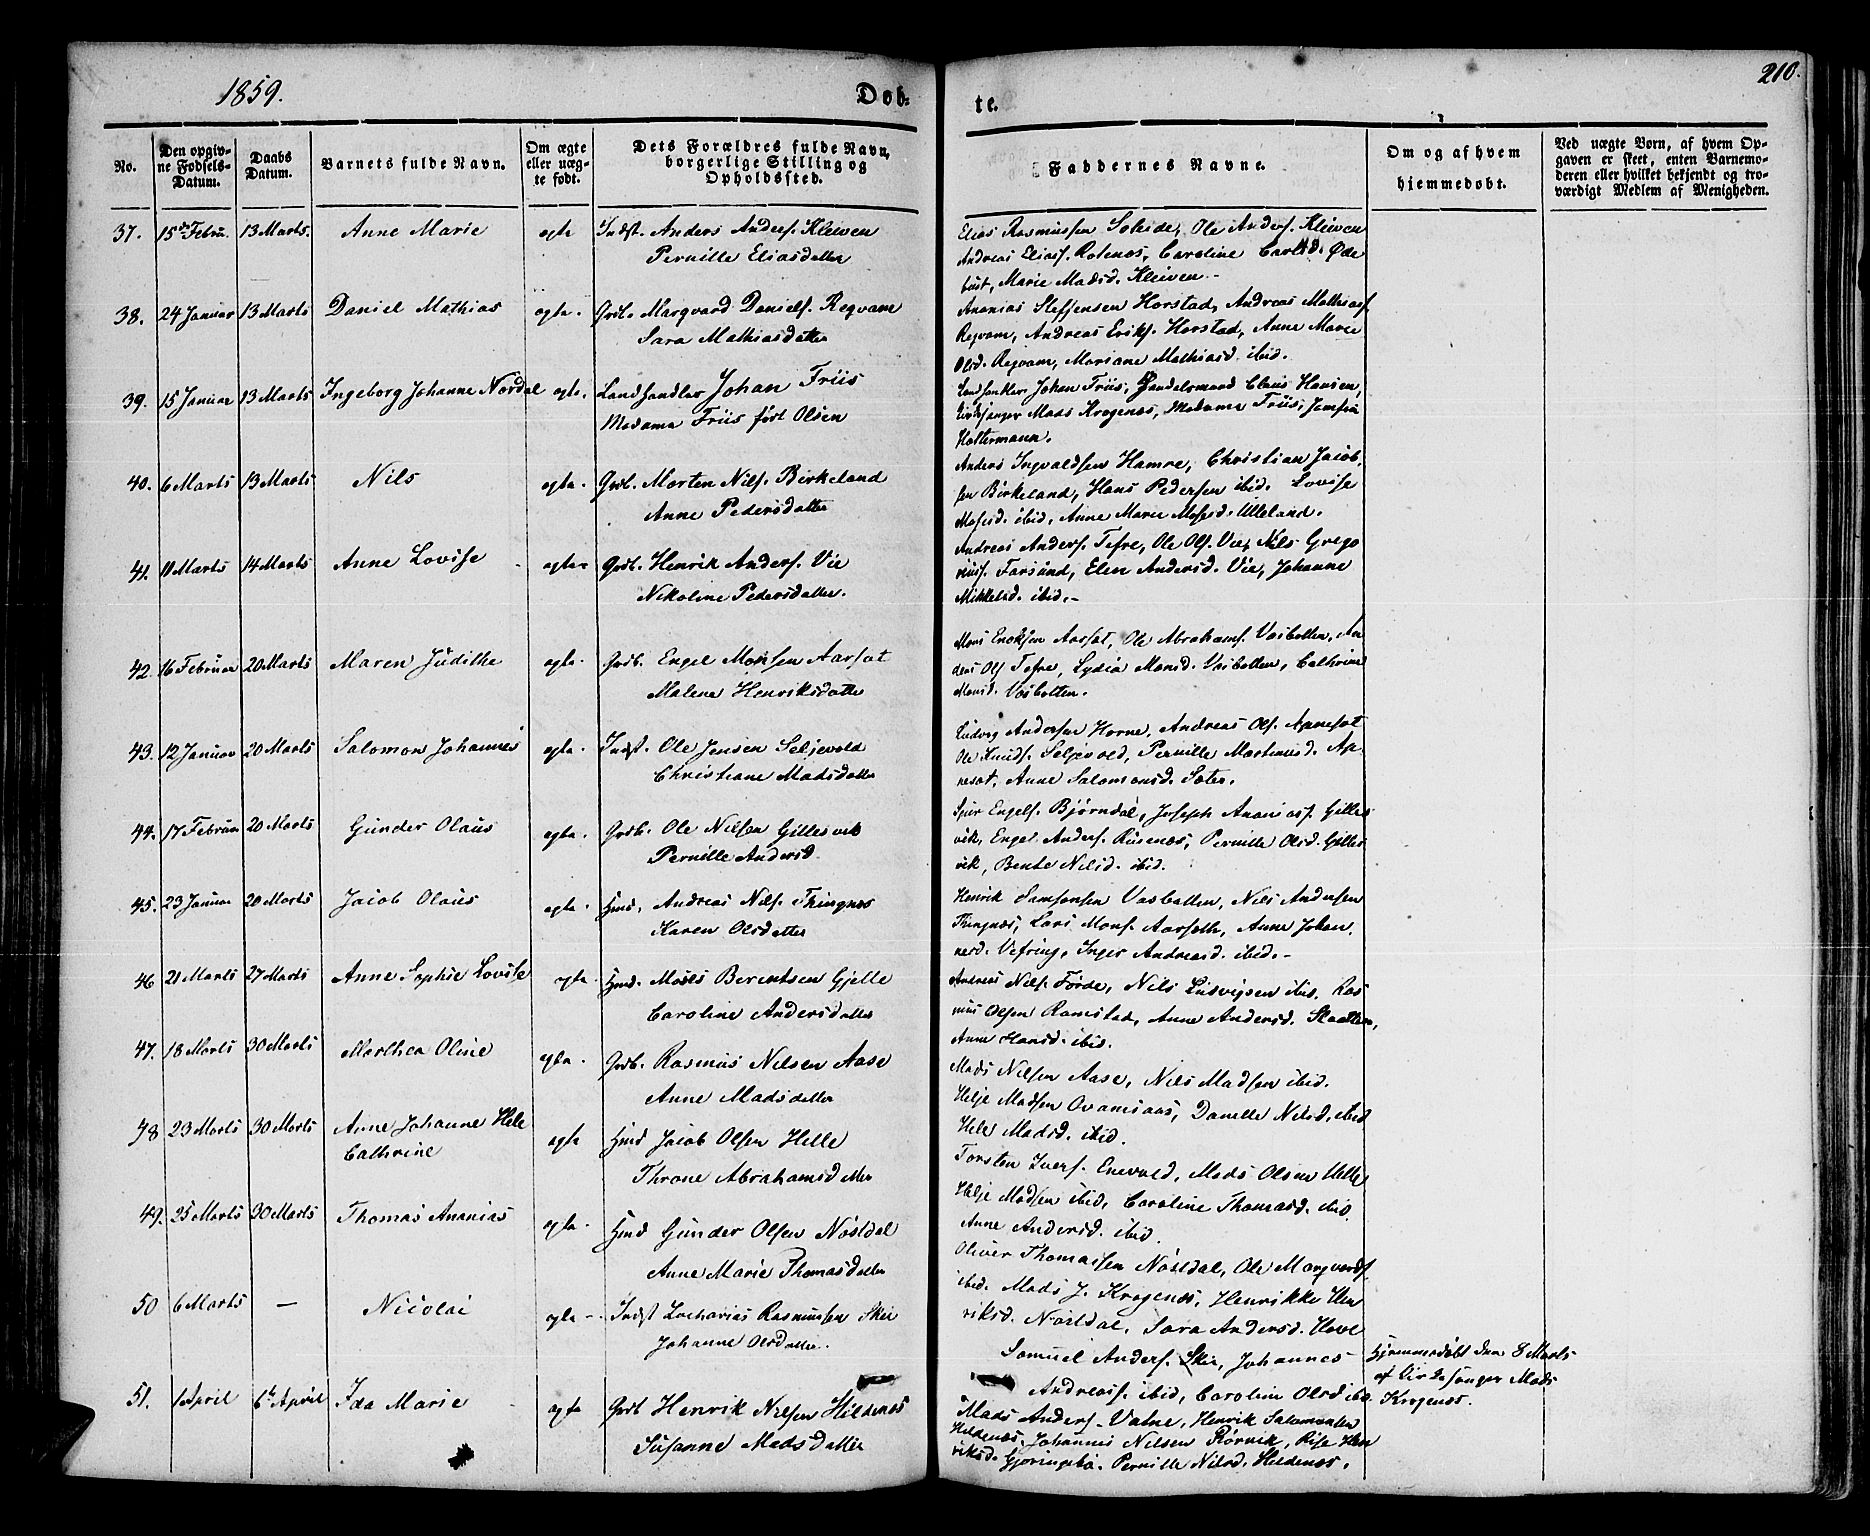 1859.
Dob-
te.
210.
No.
Den opgiv-
ne Fødsels-
Datum.
Daabs
Datum.
Barnets fulde Navn.
Om ægte
eller uæg-
te født.
Dets Forældres fulde Navn,
borgerlige Stilling og
Opholdssted.
Faddernes Navne.
Om og af hvem
hjemmedøbt.
Ved uægte Børn, af hvem Op-
gaven er skeet, enten Barnemo-
deren eller hvilket bekjendt og tro-
værdigt Medlem af Menigheden.
37. 15de Febru. 13 Marts. Anne Marie ægte Indst. Anders Anders. Kleiven
Pernille Eliasdatter
Elias Rasmussen Soleide, Ole Anders. Kleiven
Andreas Elias. Rotenæs, Caroline Carlsd. Øde
bust, Marie Madsd. Kleiven.
38. 24 Januar 13 Marts Daniel Mathias ægte. Grdb. Marqvard Daniels. Reqvam
Sara Mathiasdatter
Ananias Steffensen Horstad, Andreas Mathias.
Reqvam, Andreas Eriks. Horstad, Anne Marie
Olsd. Reqvam, Mariane Mathiasd. ibid.
39. 15 Januar 13 Marts Ingeborg Johanne Nordal ægte. Landhandler Johan Friis
Madame Friis født Olsen
Landhandler Johan Friis, Handelsmand Claus Hansen,
Kirkesanger Mads Krogenæs, Madame Friis, Jomfru
Holtermann.
40. 6 Marts 13 Marts Nils ægte. Grdb. Morten Nils. Birkeland
Anne Pedersdatter
Anders Ingvaldsen Hamre, Christian Jacob.
sen Birkeland, Hans Pedersen ibid. Lovise
Mosesd. ibid, Anne Marie Mosesd. Ulleland.
41. 11 Marts 14 Marts Anne Lovise ægte Grdb. Henrik Anders. Vie
Nikoline Pedersdatter.
Andreas Anders. Tefre, Ole Ols. Vie, Nils Grego
rius. Farsund, Elen Andersd. Vie, Johanne
Mikkelsd. ibid.
42. 16 Februar 20 Marts Maren Judithe ægte. Grdb. Engel Monsen Aarsæt
Malene Henriksdatter
Mons Enoksen Aarsæt, Ole Abrahams. Vasbotten, An
dreas Ols. Tefre, Lydia Monsd. Vasbotten, Cathrine
Monsd. Vasbotten.
43. 12 Januar 20 Marts Salomon Johannes ægte. Indst. Ole Jensen Seljevold
Christiane Madsdatter
Ludvig Andersen Horne, Andreas Ols. Apnesæt
Ole Knuds. Seljevold, Pernille Martinusd. Ap-
nesæt, Anne Salomonsd. Sæter.
44. 17 Februar 20 Marts Gunder Olaus ægte. Grdb. Ole Nilsen Gillesvik
Pernille Andersd.
Sjur Engels. Bjørndal, Joseph Ananias. Gilles
vik, Engel Anders. Rusenæs, Pernille Olsd. Gilles
vik, Bente Nilsd. ibid.
45. 23 Januar 20 Marts Jacob Olaus ægte. Hmd. Andreas Nils. Thingnæs
Karen Olsdatter
Henrik Samsonsen Vasbotten, Nils Andersen
Thingnæs, Lars Mons. Aarseth, Anne Johan.
nesd. Vefring, Inger Andreasd. ibid.
46 21 Marts 27 Marts Anne Sophie Lovise ægte. Hmd. Moses Berentsen Gjelle
Caroline Andersdatter
Andreas Nils. Førde, Nils Ludvigsen ibid, Ras
mus Olsen Ramstad, Anne Andersd. Slaatten,
Anne Hansd. ibid.
47. 18 Marts 30 Marts Marthea Oline ægte. Grdb. Rasmus Nilsen Aase
Anne Madsdatter
Mads Nilsen Aase, Nils Madsen ibid.
Helje Madsen Qvamsaas, Danelle Nilsd. ibid
Hele Madsd. ibid.
48 23 Marts 30 Marts Anne Johanne Hele
Cathrine ægte Hmd Jacob Olsen Helle
Throne Abrahamsdatter
Torsten Ivers. Enevold, Mads Olsen Helle,
Helje Madsen ibid, Caroline Thomasd. ibid.
Anne Andersd. ibid.
49. 25 Marts 30 Marts Thomas Ananias ægte. Hmd Gunder Olsen Nøsldal
Anne Marie Thomasdatter
Oliver Thomassen Nøstdal, Ole Marqvards.
ibid. Mads J. Krogenæs, Henrikke Hen
riksd. Nøstdal, Sara Andersd. Hove
50 6 Marts — Nicolai ægte - Indst Zacharias Rasmussen Skei
Johanne Olsdatter
Samuel Anders. Skei, Johannes
Andreas. ibid, Caroline Olsd ibd.
Hjemmedøbt den 8 Marts
af Kirkesanger Mads
Krogenæs.
51. 1 April 6te April Ida Marie ægte Grdb Henrik Nilsen Hildenæs
Susanne Madsdatter
Mads Anders. Vatne, Henrik Salomonsen
Hildenæs, Johannes Nilsen Rørvik, Rise Hen
riksd. Gjøringebø. Pernille Nilsd. Hildenæs.